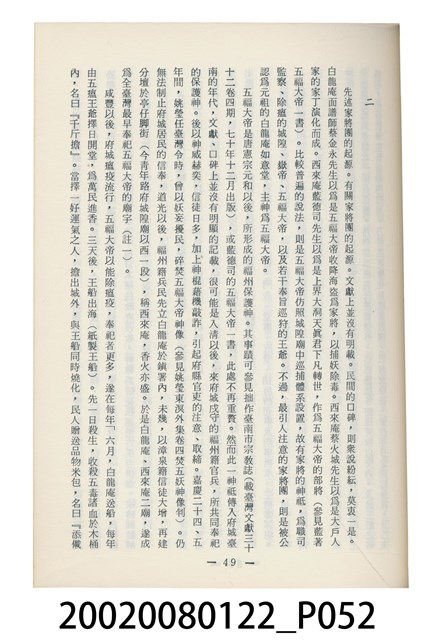 二
先述家將團的起源。有關家將團的起源。文獻上並沒有明載。民間的口碑,則衆說紛耘,莫衷一是。
白龍庵面譜師蔡金永先生以爲是五福大帝收降海盜爲家將,以捕妖除毒。西來庵蔡火城先生以爲是大戶人
家的家丁演化而成。西來庵藍德司先生以爲是上界大洞天眞君下凡轉世,作爲五福大帝的部將(參見藍著
五福大帝一書)。比較普遍的說法,則是五福大帝仿照城隍廟中巡捕體系設置,故有家將的神祗,爲職司
監察、除瘟的城隍、嶽帝、五福大帝,以及若干奉旨巡狩的王爺。不過,最引人注意的家將團,則是被公
認爲元祖的白龍庵如意堂,主神爲五福大帝。
五福大帝是唐憲宗元和以後,所形成的福州保護神。其事蹟可參見拙作臺南市宗敎誌(載臺灣文獻三十
十二卷四期,七十年十二月出版),或藍德司的五福大帝一書,此處不再重贅。然而此一神祗傳入府城臺
南的年代,文獻、口碑上並沒有明顯的記載,很可能是入清以後,來府城戍守的福州籍官兵,所共同奉祀
的保護神。後以神威赫奕,信徒日多,加上神棍藉機敲詐,引起府縣官吏的注意、取締。嘉慶二十四、五
年間,姚瑩任臺灣令時,曾以妖妄擾民,碎焚五福大帝神像(參見姚瑩東溟外集卷四焚五妖神像判)。仍
無法制止府城居民的信奉,道光以後,福州籍兵民先立白龍庵於鎭署內,未幾,以漳泉籍信徒大增,再建
分壇於亭仔脚街(今靑年路府城隍廟以西一段),稱西來庵,香火亦盛。於是白龍庵、西來庵二廟,遂成
爲全臺灣最早奉祀五福大帝的廟宇(註一)。
咸豐以後,府城瘟疫流行,五福大帝以能除瘟疫,奉祀者更多,遂在每年「六月,白龍庵送船,每年
由五瘟王爺擇日開堂,爲萬民進香。三天後,王船出海(紙製王船)。先一日殺生,收殺五毒諸血於木桶
內,名曰『千斤擔』。當擇一好運氣之人,擔出城外,與王船同時燒化,民人贈送品物米包,名曰『添儎
— 49 —
20020080122_P052